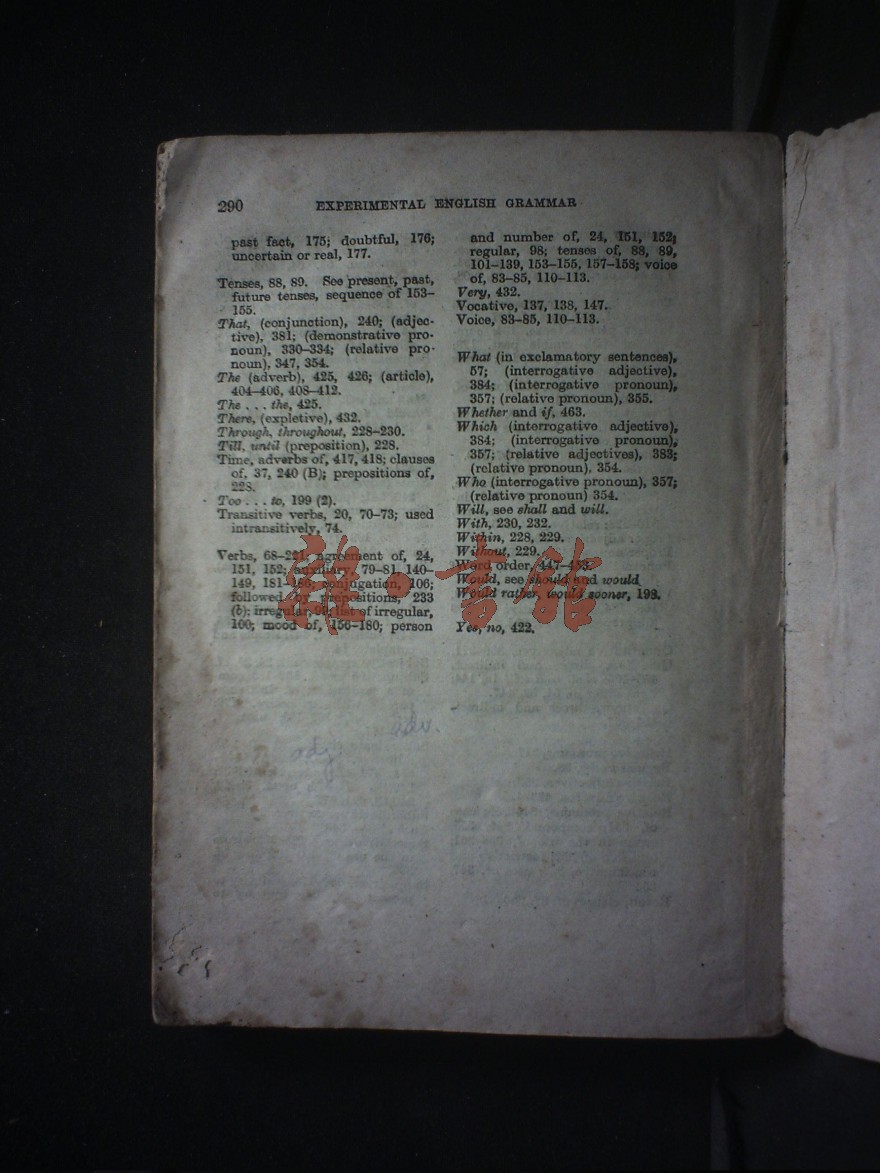 290 EXPERIMENTAL ENGLISH GRAMMAR
past fact, 175; doubtful, 176;
uncertain or real, 177.
Tenses, 88, 89. See present, past,
future tenses, sequence of 153–
155.
That, (conjunction), 240; (adjec-
tive), 381; (demonstrative pro-
noun), 330–334; (relative pro-
noun), 347, 354.
The (adverb), 425, 426; (article),
404–406, 408–412.
The . . . the, 425.
There, (expletive), 432.
Through, throughout, 228–230.
Till, until (preposition), 228.
Time, adverbs of, 417, 418; clauses
of, 37, 240 (B); prepositions of,
228.
Too . . . to, 199 (2).
Transitive verbs, 20, 70–73; used
intransitively, 74.
Verbs, agreement of, 24,
151, 152; auxiliary, 79–81, 140–
149, conjugation, 106;
followed by prepositions, 233
(b); irregular, list of irregular,
100; mood of, 156–180; person
and number of, 24, 151, 152;
regular, 98; tenses of, 88, 89,
101–139, 153–155, 157–158; voice
of, 83–85, 110–113.
Very, 432.
Vocative, 137, 138, 147.
Voice, 83–85, 110–113.
What (in exclamatory sentences),
57; (interrogative adjective),
384; (interrogative pronoun),
357; (relative pronoun), 355.
Whether and if, 463.
Which (interrogative adjective),
384; (interrogative pronoun),
357; (relative adjectives), 383;
(relative pronoun), 354.
Who (interrogative pronoun), 357;
(relative pronoun) 354.
Will, see shall and will.
With, 230, 232.
Within, 228, 229.
Without, 229.
Word order,
Would, see should and would.
Would rather, would sooner, 198.
Yes, no, 422.
adv.
adj